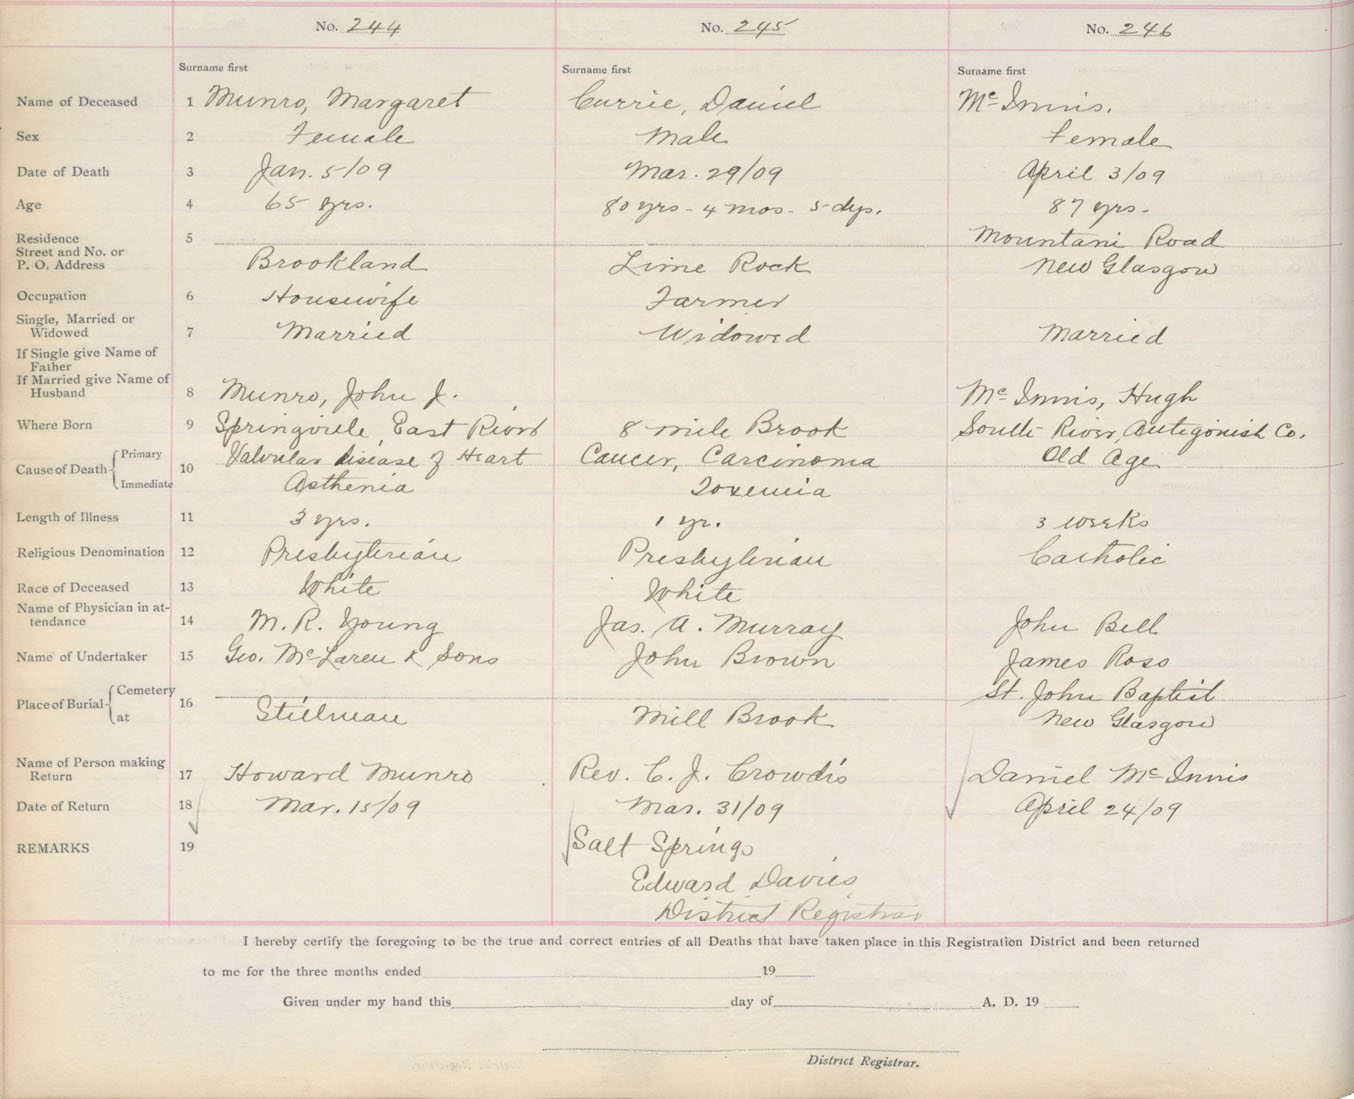 No. 244 No. 245 No. 246
Surname first Surname first Surname first
Name of Deceased 1 Munro, Margaret Currie, Daniel McInnis.
Sex 2 Female Male Female
Date of Death 3 Jan. 5/09 Mar. 29/09 April 3/09
Age 4 65 yrs. 80 yrs - 4 mos - 5 dys. 87 yrs.
Residence 5 Mountain Road
Street and No. or
P. O. Address Brookland Lime Rock New Glasgow
Occupation 6 Housewife Farmer
Single, Married or
Widowed 7 Married Widowed Married
If Single give Name of
Father
If Married give Name of
Husband 8 Munro, John J. McInnis, Hugh
Where Born 9 Springville, East River 8 mile Brook South River, Antigonish Co.
Cause of Death Primary 10 Valvular disease of Heart Cancer, Carcinoma Old Age
Immediate Asthenia Toxemia
Length of Illness 11 3 yrs. 1 yr. 3 weeks
Religious Denomination 12 Presbyterian Presbyterian Catholic
Race of Deceased 13 White White
Name of Physician in at-
tendance 14 M. R. Young Jas. A. Murray John Bell
Name of Undertaker 15 Geo. McLaren & Sons John Brown James Ross
Place of Burial Cemetery 16 St. John Baptist
at Stillman Mill Brook New Glasgow
Name of Person making
Return 17 Howard Munro Rev. C. J. Crowdis Daniel McInnis
Date of Return 18 Mar. 15/09 Mar. 31/09 April 24/09
REMARKS 19 Salt Springs
Edward Davies
District Registrar
I hereby certify the foregoing to be the true and correct entries of all Deaths that have taken place in this Registration District and been returned
to me for the three months ended 19
Given under my hand this day of A. D. 19
District Registrar.